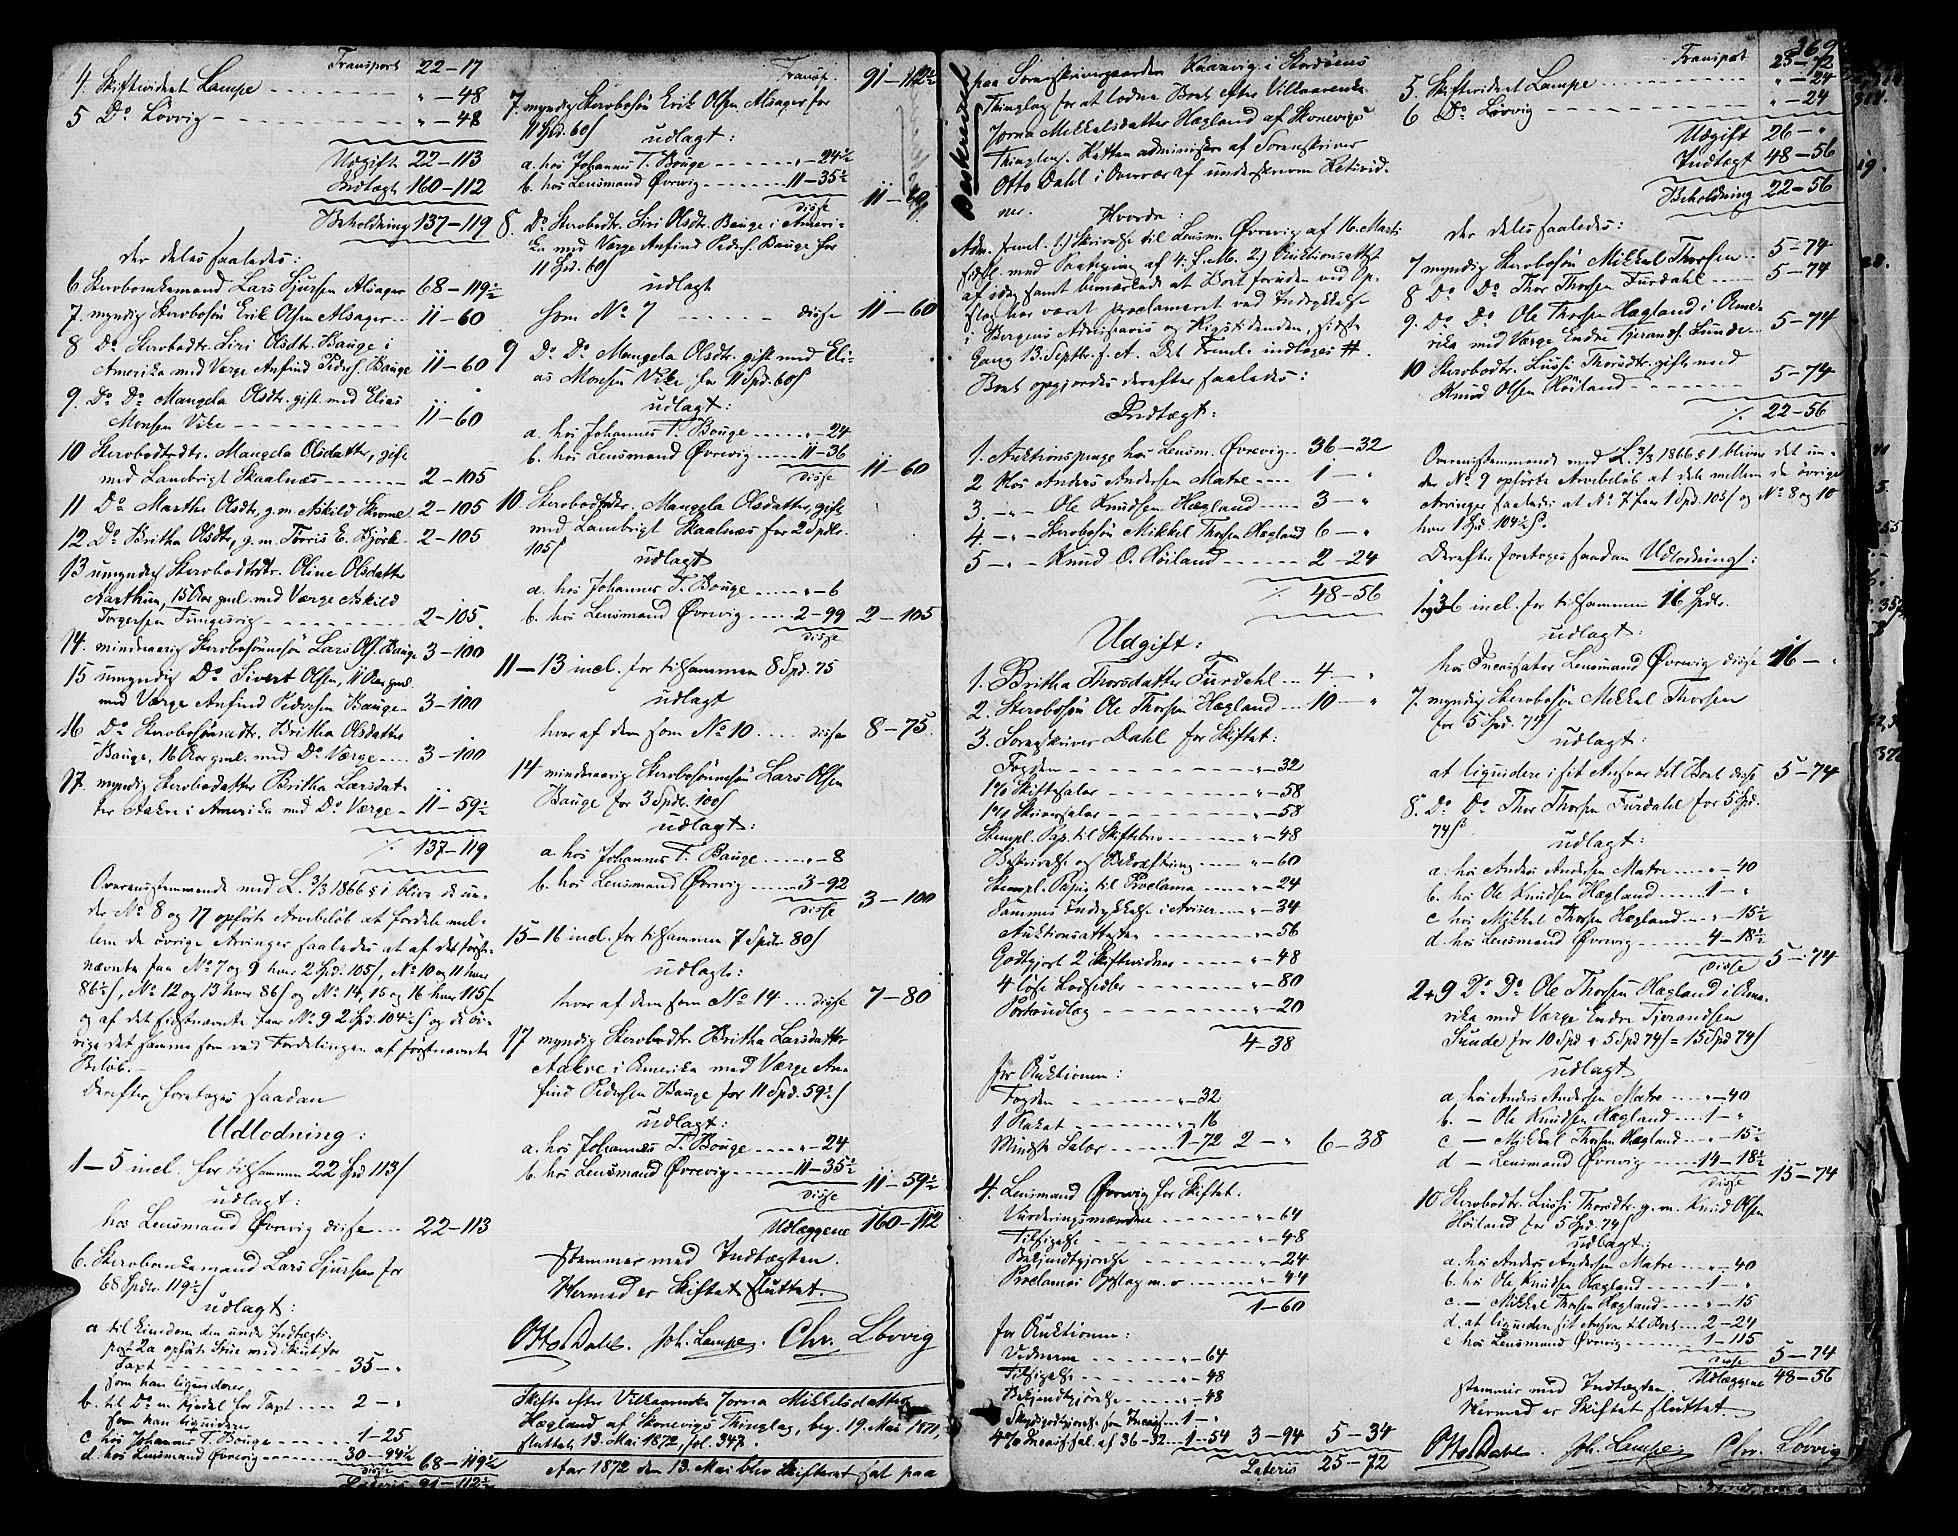 Transport 22-17
4. Skiftevidnet Lampe " - 48
5 Do Løvvig " - 48
Udgift 22-113
Indtægt 160-112
Beholdning 137-119
der deles saaledes:
6 Sterboenkemand Lars Sjursen Alsager 68-119½
7. myndig Sterbosøn Erik Olsen Alsager 11-60
8 Do Sterbodtr. Siri Olsdtr. Bauge i
Amerika med Værge Anfind Peders. Bauge 11-60
9. Do Do Mangela Olsdtr. gift med Elias
Monsen Vike 11-60
10 Sterbodtrdtr. Mangela Olsdatter, gift
med Lambrigt Skaalnæs 2-105
11 Do Marthe Olsdtr, g.m. Askild 2-105
12 Do Britha Olsdtr, g.m. Torris E. Bjørk 2-105
13 umyndig Sterbodtrdtr. Oline Olsdatter
Aarthun, 15 Aar gml. med Værge Askild
Torgersen Tungesvig 2-105.
14. mindreaarig Sterbosønnesøn Lars Ols. Bauge 3-100
15 umyndig Do Sivert Olsen, 11 Aar gml.
med Værge Anfind Pedersen Bauge 3-100
16 Do Sterbosønsdtr. Britha Olsdatter
Bauge, 16 Aar gml. med Do Værge 3-100
17. myndig Sterbodatter Britha Larsdat-
ter Aakre i Amerika med Do Værge 11-59½
./. 137-119
Overensstemmende med L. 3/3 1866 § 1 blive de un-
der No 8 og 17 opførte Arvebeløb at fordele mel-
lem de øvrige Arvinger saaledes at af det først-
nævnte faa No 7 og 9 hver 2 Spd. 105 s, No 10 og 11 hver
86½ s, No 12 og 13 hver 86 s og No 14, 15 og 16 hver 115 s
og af det sidstnævnte faar No 9 2 Spd. 104½ s og de øv-
rige det samme som ved Fordelingen af førstnævnte
Beløb.
Derefter foretoges saadan
Udlodning:
1-5 incl. for tilsammen 22 Spd 113 s
udlagt:
hos Lensmand Øvrevig disse 22-113
6. Sterboenkemand Lars Sjursen for
68 Spdr. 119½ s
udlagt:
a til Eiendom den under Indtægts-
post 2a opførte med for
Taxt 35 - "
som han liquiderer
b. til Do en Kjedel for Taxt 2 - "
som han liquiderer
c hos Johannes T. Bouge 1-25
d. hos Lensmand Øvrevig 30-94½
disse 68-119½
Lateris 91-112½
Transp. 91-112½
7. myndig Sterbosøn Erik Olsen Alsager for
11 Spd. 60 s
udlagt:
a. hos Johannes T. Bouge " - 24½
b. hos Lensmand Øvrevig 11-35½
disse 11-60
8. Do Sterbodtr. Siri Olsdtr. Bauge i Ameri-
ka med Værge Anfind Peders. Bauge for
11 Spd. 60 s
udlagt
som No 7 disse 11-60
9 Do Do Mangela Olsdtr. gift med Eli-
as Monsen Vike for 11 Spd. 60 s
udlagt:
a. hos Johannes T. Bouge " - 24
b. hos Lensmand Øvrevig 11-36
disse 11-60
10. Sterbodtrdtr. Mangela Olsdatter, gift
med Lambrigt Skaalnæs for 2 Spdr.
105 s
udlagt
a. hos Johannes T. Bouge " - 6
b. hos Lensmand Øvrevig 2-99 2-105
disse
11-13 incl. for tilsammen 8 Spd. 75
udlagt
hver af dem som No 10 disse 8-75.
14 mindreaarig Sterbosønnesøn Lars Olsen
Bauge for 3 Spdr. 100 s
udlagt:
a. hos Johannes T. Bauge " - 8
b. hos Lensmand Øvrevig 3-92
disse 3-100
15-16 incl. for tilsammen 7 Spdr 80 s
udlagt:
hver af dem som No 14 disse 7-80
17 myndig Sterbodtr. Britha Larsdatter
Aakre i Amerika med Værge An-
find Pedersen Bauge for 11 Spd. 59½ s
udlagt:
a. hos Johannes T. Bouge " - 24
b. hos Lensmand Øvrevig 11-35½
disse 11-59½
Udlæggene 160-112
stemmer med Indtægten.
Hermed er Skiftet sluttet.
Otto Dahl. Joh. Lampe. Chr. Løvvig
Skifte efter Vilkaarenke Jorna Mikkelsdatter
Hægland af Skonevigs Thinglag, beg. 19. Mai 1871,
sluttet 13. Mai 1872, fol. 347.
Aar 1872 den 13. Mai blev Skifteret sat paa
Beskrevet
369
paa Sorenskrivergaarden Kaarevig i Stordøens
Thinglag for at lodne Boet efter Vilkaarenke
Jorna Mikkelsdatter Hægland af Skonevigs
Thinglag. Retten administr. af Sorenskriver
Otto Dahl i Overvær af underskrevne Retsvid-
ner. Hvorda:
Adm. freml. 1.) Skrivelse til Lensm. Øvrevig af 16. Marts
sidstl. med Paategning af 4. f. M. 2.) Auktionsattest
af idag samt bemærkede at Boet foruden ved Op-
slag har været proclameret ved Indrykkelse
i Bergens Adresseavis og Rigstidenden, sidste
Gang 13. Septbr. f. A. Det Freml. indtages #.
Boet opgjordes derefter saaledes:
Indtægt:
1. Auktionspenge hos Lensm. Øvrevig 36-32
2 Hos Anders Andersen Matre 1 - "
3. - " - Ole Knudsen Hægland 3 - "
4. - " - Sterbosøn Mikkel Thorsen Hægland 6 - "
5 - " - Knud O. Høiland 2-24
./. 48-56
Udgift:
1. Britha Thorsdatter Furdahl 4 - "
2. Sterbosøn Ole Thorsen Hægland 10 - "
3. Sorenskriver Dahl for Skiftet:
Fogden " - 32
1% Skiftesalær " - 58
1% Skriversalær " - 58
Stempl. Pap. til Skiftebrev " - 48
Beskrivelse og Bekræftning " - 60
Stempl. Papir til Proclama " - 24
Sammes Indrykkelse i Aviser " - 34
Auktionsattester " - 56
Godtgjort 2 Skiftevidner " - 48
4 løse Lodsedler " - 80
Portoudlæg " - 20
4-38
for Auktionen:
Fogden " - 32
1 Plakat " - 16
Mindste Salær 1-72 2 - " 6-38
4. Lensmand Øvrevig for Skiftet.
Vurderingsmændene " - 64
Tilsigelse " - 48
Bekjendtgjørelse " - 24
Proclamas Opslag m. v " - 44
1-60
for Auktionen:
Vidnerne " - 64
Tilsigelse " - 48
Bekjendtgjørelse " - 48
Skydsgodtgjørelse som 1 - "
4% Incass.sal. af 36-32 1-54 3-94 5-34
Lateris 25-72
Transport 25-72
5. Skiftevidnet Lampe " - 24
6 Do Løvvig " - 24
Udgift 26 - "
Indtægt 48-56
Beholdning 22-56
der deles saaledes:
7 myndig Sterbosøn Mikkel Thorsen 5-74
8 Do Do Thor Thorsen Furdahl 5-74
9. Do Do Ole Thorsen Hægland i Ame-
rika med Værge Endre Tjerands. Sunde 5-74
10 Sterbodtr. Lussi Thorsdtr. gift med
Knud Olsen Høiland 5-74
./. 22-56
Overensstemmende med L. 3/3 1866 § 1 bliver det un-
der No 9 opførte Arvebeløb at dele mellem de øvrige
Arvinger saaledes at No 7 faar 1 Spd. 105 s og No 8 og 10
hver 1 Spd. 104½ s.
Derefter foretoges saadan Udlodning:
1 og 3-6 incl. for tilsammen 16 Spdr.
udlagt:
hos Incassator Lensmand Øvrevig disse 16 - "
7. myndig Sterbosøn Mikkel Thorsen
for 5 Spd. 74 s
udlagt:
at liquidere i sit Ansvar til Boet disse 5-74
8. Do Do Thor Thorsen Furdahl for 5 Spd.
74 s
udlagt:
a. hos Anders Andersen Matre " - 40
b. hos Ole Knudsen Hægland 1 - "
c hos Mikkel Thorsen Hægland " - 15½
d. hos Lensmand Øvrevig 4-18½
disse 5-74
2 + 9 Do Do Ole Thorsen Hægland i Ame-
rika med Værge Endre Tjerandsen
Sunde for 10 Spd + 5 Spd 74 s = 15 Spd 74 s
udlagt
a. hos Anders Andersen Matre " - 40
b. - Ole Knudsen Hægland 1 - "
c - Mikkel Thorsen Hægland " - 15½
d - Lensmand Øvrevig 14-18½
disse 15-74
10 Sterbodtr. Lussi Thorsdtr. g. m. Knud Olsen
Høiland for 5 Spd. 74 s
udlagt:
a. hos Anders Andersen Matre " - 40
b. hos Ole Knudsen Hægland 1 - "
c. - Mikkel Thorsen Hægland " - 15
d. at liquidere i sit Ansvar til Boet 2-24
e hos Lensmand Øvrevig 1-115
disse 5-74
Udlæggene 48-56
stemmer med Indtægten
Hermed er Skiftet sluttet.
Otto Dahl. Joh. Lampe. Chr. Løvvig